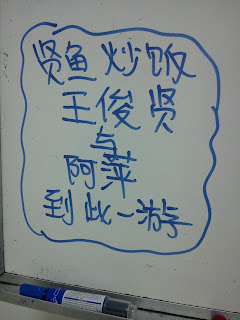 贤鱼炒饭
王俊贤
与
阿萍
到此一游